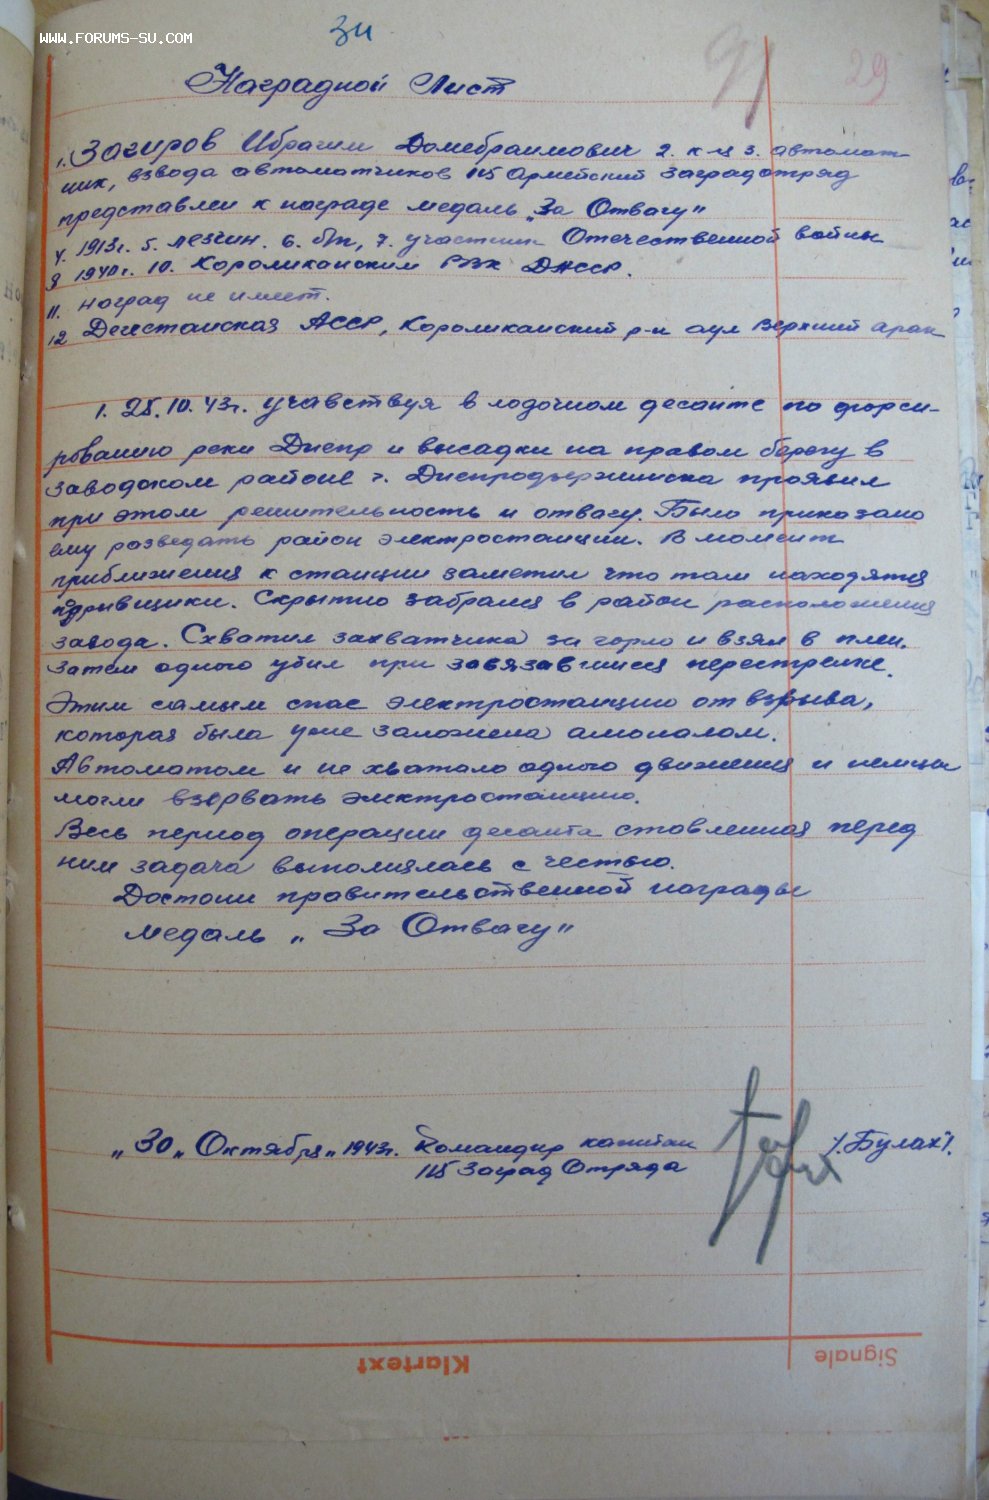 WWW.FORUMS-SU.COM
34
91
29
Наградной Лист
1. Загиров Ибрагим Домебраимович 2. к-ц 3. автомат-
чик, взвода автоматчиков 115 Армейский Заградотряд
представлен к награде медаль „За Отвагу"
4. 1913г. 5. лезгин. 6. б/п, 7. участник Отечественной войны
8 1940г. 10. Корoликанским РВК ДАССР.
11. наград не имеет.
12 Дагестанская АССР, Короликанский р-н аул Верхний арак
1. 25.10.43г. учавствуя в лодочном десанте по форси-
рованию реки Днепр и высадки на правом берегу в
заводском районе г. Днепродзержинска проявил
при этом решительность и отвагу. Было приказано
ему розведать район электростанции. В момент
приближения к станции заметил что там находятся
подрывщики. Скрытно забрался в район расположения
завода. Схватил захватчика за горло и взял в плен.
Затем одного убил при завязавшиеся перестрелке.
Этим самым спас электростанцию от взрыва,
которая была уже заложена амоналом.
Автоматом и не хватало одного движения и немцы
могли взорвать электростанцию.
Весь период операции десанта ставленная перед
ним задача выполнялась с честью.
Достоин правительственной награды
медаль „За Отвагу"
„30„ Октября„ 1943г. Командир капитан
115 Заград Отряда
/.Булах"/.
Klartext
Signale